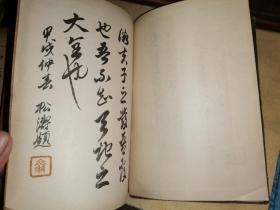 微夫子之發吾覆
也吾不知天地之
大全也
甲戌仲春 松濤題